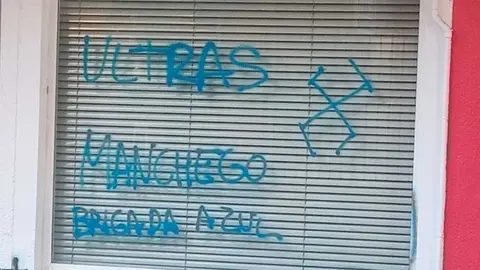 ULTRAS
MANCHEGO
BRIGADA AZUL